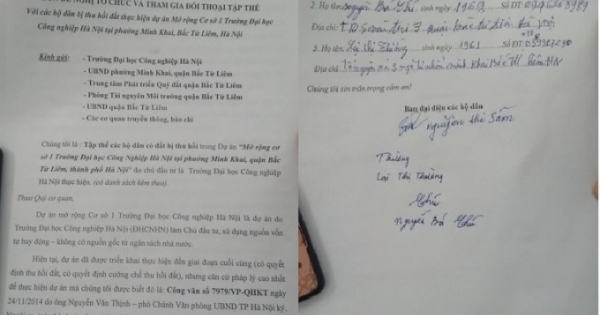 NGHỊ TỔ CHỨC VÀ THAM GIA ĐỐI THOẠI TẬP THỂ
Với các hộ dân bị thu hồi đất thực hiện dự án Mở rộng Cơ sở 1 Trường Đại học
Công nghiệp Hà Nội tại phường Minh Khai, Bắc Từ Liêm, Hà Nội
Kính gửi:
- Trường Đại học Công nghiệp Hà Nội
- UBND phường Minh Khai, Bắc Từ Liêm
- Trung tâm Phát triển Quỹ đất quận Bắc Từ Liêm
- Phòng Tài nguyên Môi trường quận Bắc Từ Liêm
- UBND quận Bắc Từ Liêm
- Các cơ quan truyền thông, báo chí
Chúng tôi là : Tập thể các hộ dân có đất bị thu hồi trong Dự án "Mở rộng cơ
sở 1 Trường Đại học Công Nghiệp Hà Nội tại phường Minh Khai, quận Bắc
Từ Liêm, thành phố Hà Nội" do chủ đầu tư là Trường Đại học Công nghiệp
Hà Nội thực hiện. (có danh sách kèm theo).
Thưa Quý cơ quan,
Dự án mở rộng Cơ sở 1 Trường Đại học Công nghiệp Hà Nội là dự án do
Trường Đại học Công nghiệp Hà Nội (ĐHCNHN) làm Chủ đầu tư, sử dụng nguồn vốn
tự huy động – không có nguồn gốc từ ngân sách nhà nước.
Hiện tại, dự án đã được triển khai thực hiện đến giai đoạn cuối cùng (có quyết
định thu hồi đất, có quyết định cưỡng chế thu hồi đất), nhưng căn cứ pháp lý cao nhất
để thực hiện dự án mà chúng tôi được biết đó là: Công văn số 7979/VP-QHKT ngày
24/11/2014 do ông Nguyễn Văn Thịnh – phó Chánh Văn phòng UBND TP Hà Nội ký.
2. Họ tên Nguyễn Bá sinh ngày Số ĐT:
Địa chỉ:
3. Họ tên: Lại Thị Thường sinh ngày 1961 Số ĐT:
Địa chỉ
Chúng tôi xin trân trọng cảm ơn!
Ban đại diện các hộ dân
Nguyễn thị Sâm
Thường
Lại Thị Thường
Nguyễn Bá